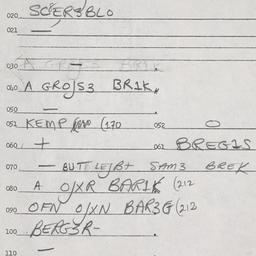 020 SCIERSBLO
021 —
030 —
040 A GROJS3 BR1K.
050 —
051 KEMP (170 052 O
060 + 061 BREG1S
070 — BUTTLEJBT SAM3 BREK
080 A OJXR BAR1K (212
090 OFN OJXN BAR3G (212
100 BERG3R- .
110 —